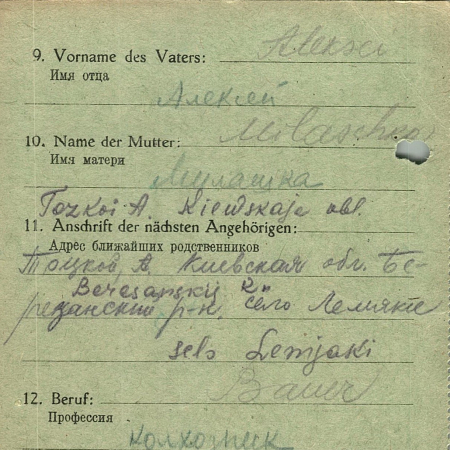 9. Vorname des Vaters: Aleksei
Имя отца
Алексей
10. Name der Mutter: Milaschka
Имя матери
Милашка
Tozkoi A. Kiewskaje obl.
11. Anschrift der nächsten Angehörigen:
Адрес ближайших родственников
Тоцкой А. Киевская обл. Бе-
Beresanskij R-n
резанский р-н, село Лемяки
selo Lemjaki
12. Beruf: Bauer
Профессия
колхозник